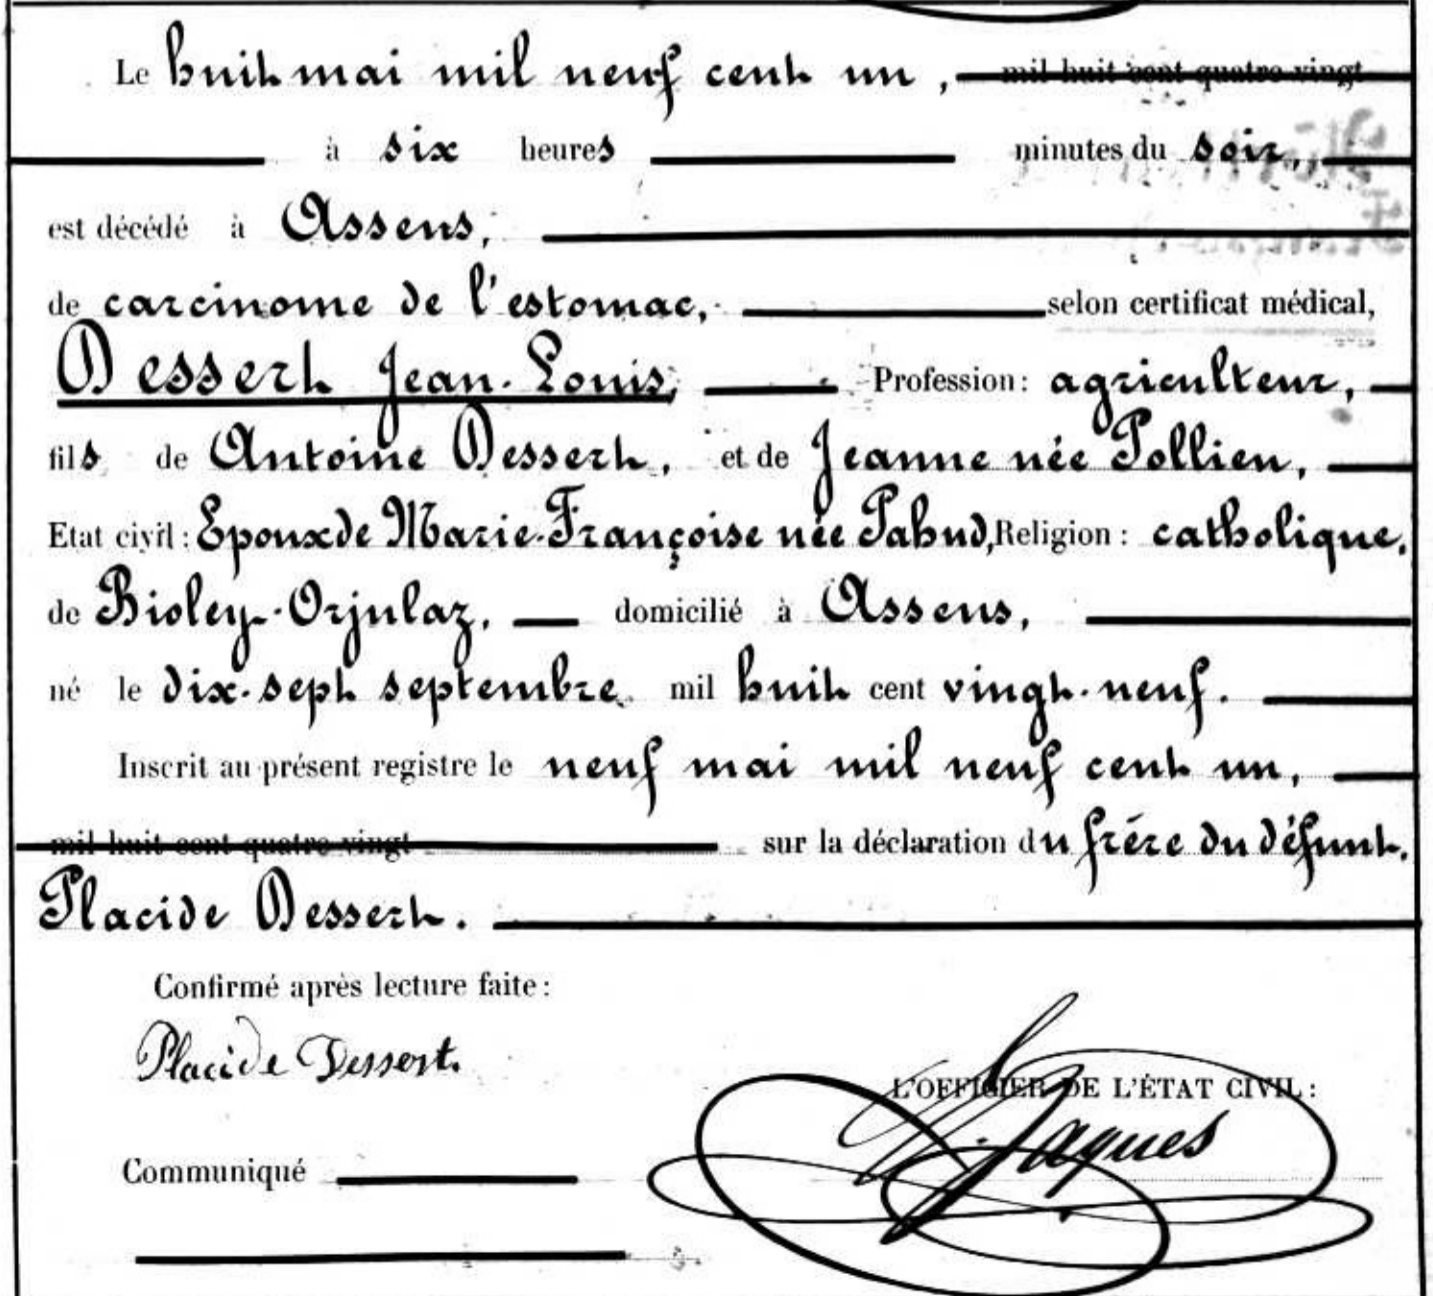 Le huit mai mil neuf cent un, mil huit cent quatre vingt
à six heures minutes du soir,
est décédé à Assens,
de carcinome de l'estomac, selon certificat médical,
Dessert Jean-Louis, Profession: agriculteur,
fils de Antoine Dessert, et de Jeanne née Pollien,
Etat civil: Epoux de Marie-Françoise née Pahud, Religion: catholique,
de Bioley-Orjulaz, domicilié à Assens,
né le dix-sept septembre mil huit cent vingt-neuf.
Inscrit au présent registre le neuf mai mil neuf cent un,
mil huit cent quatre vingt sur la déclaration du frére du défunt,
Placide Dessert.
Confirmé après lecture faite:
Placide Dessert.
L'OFFICIER DE L'ÉTAT CIVIL:
Jaques
Communiqué